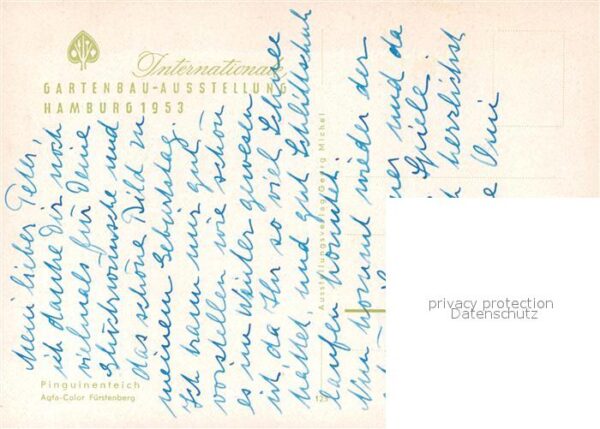 Internationale
GARTENBAU-AUSSTELLUNG
HAMBURG 1953
Mein lieber Peter,
ich danke Dir noch
vielmals für Deine
Glückwünsche und
das schöne Bild zu
meinem Geburtstag.
Ich kann mir gut
vorstellen wie schön
es im Winter gewesen
ist da Ihr so viel Schnee
hattet, und gut Schlittschuh
laufen konntet.
Nun kommt wieder der
und da
Spiele.
herzlichst
Omi
Ausstellungsverlag Georg Michel
Pinguinenteich
Agfa-Color Fürstenberg
privacy protection
Datenschutz